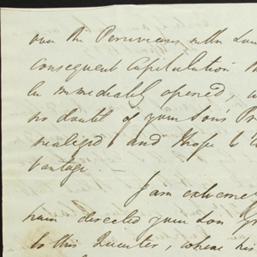 over the Peruvians with
consequent Capitulation
be immediately opened,
no doubt of your Sons
realized and hope to
vantage. —
I am extreme
have directed your Son
to this Quarter, where his